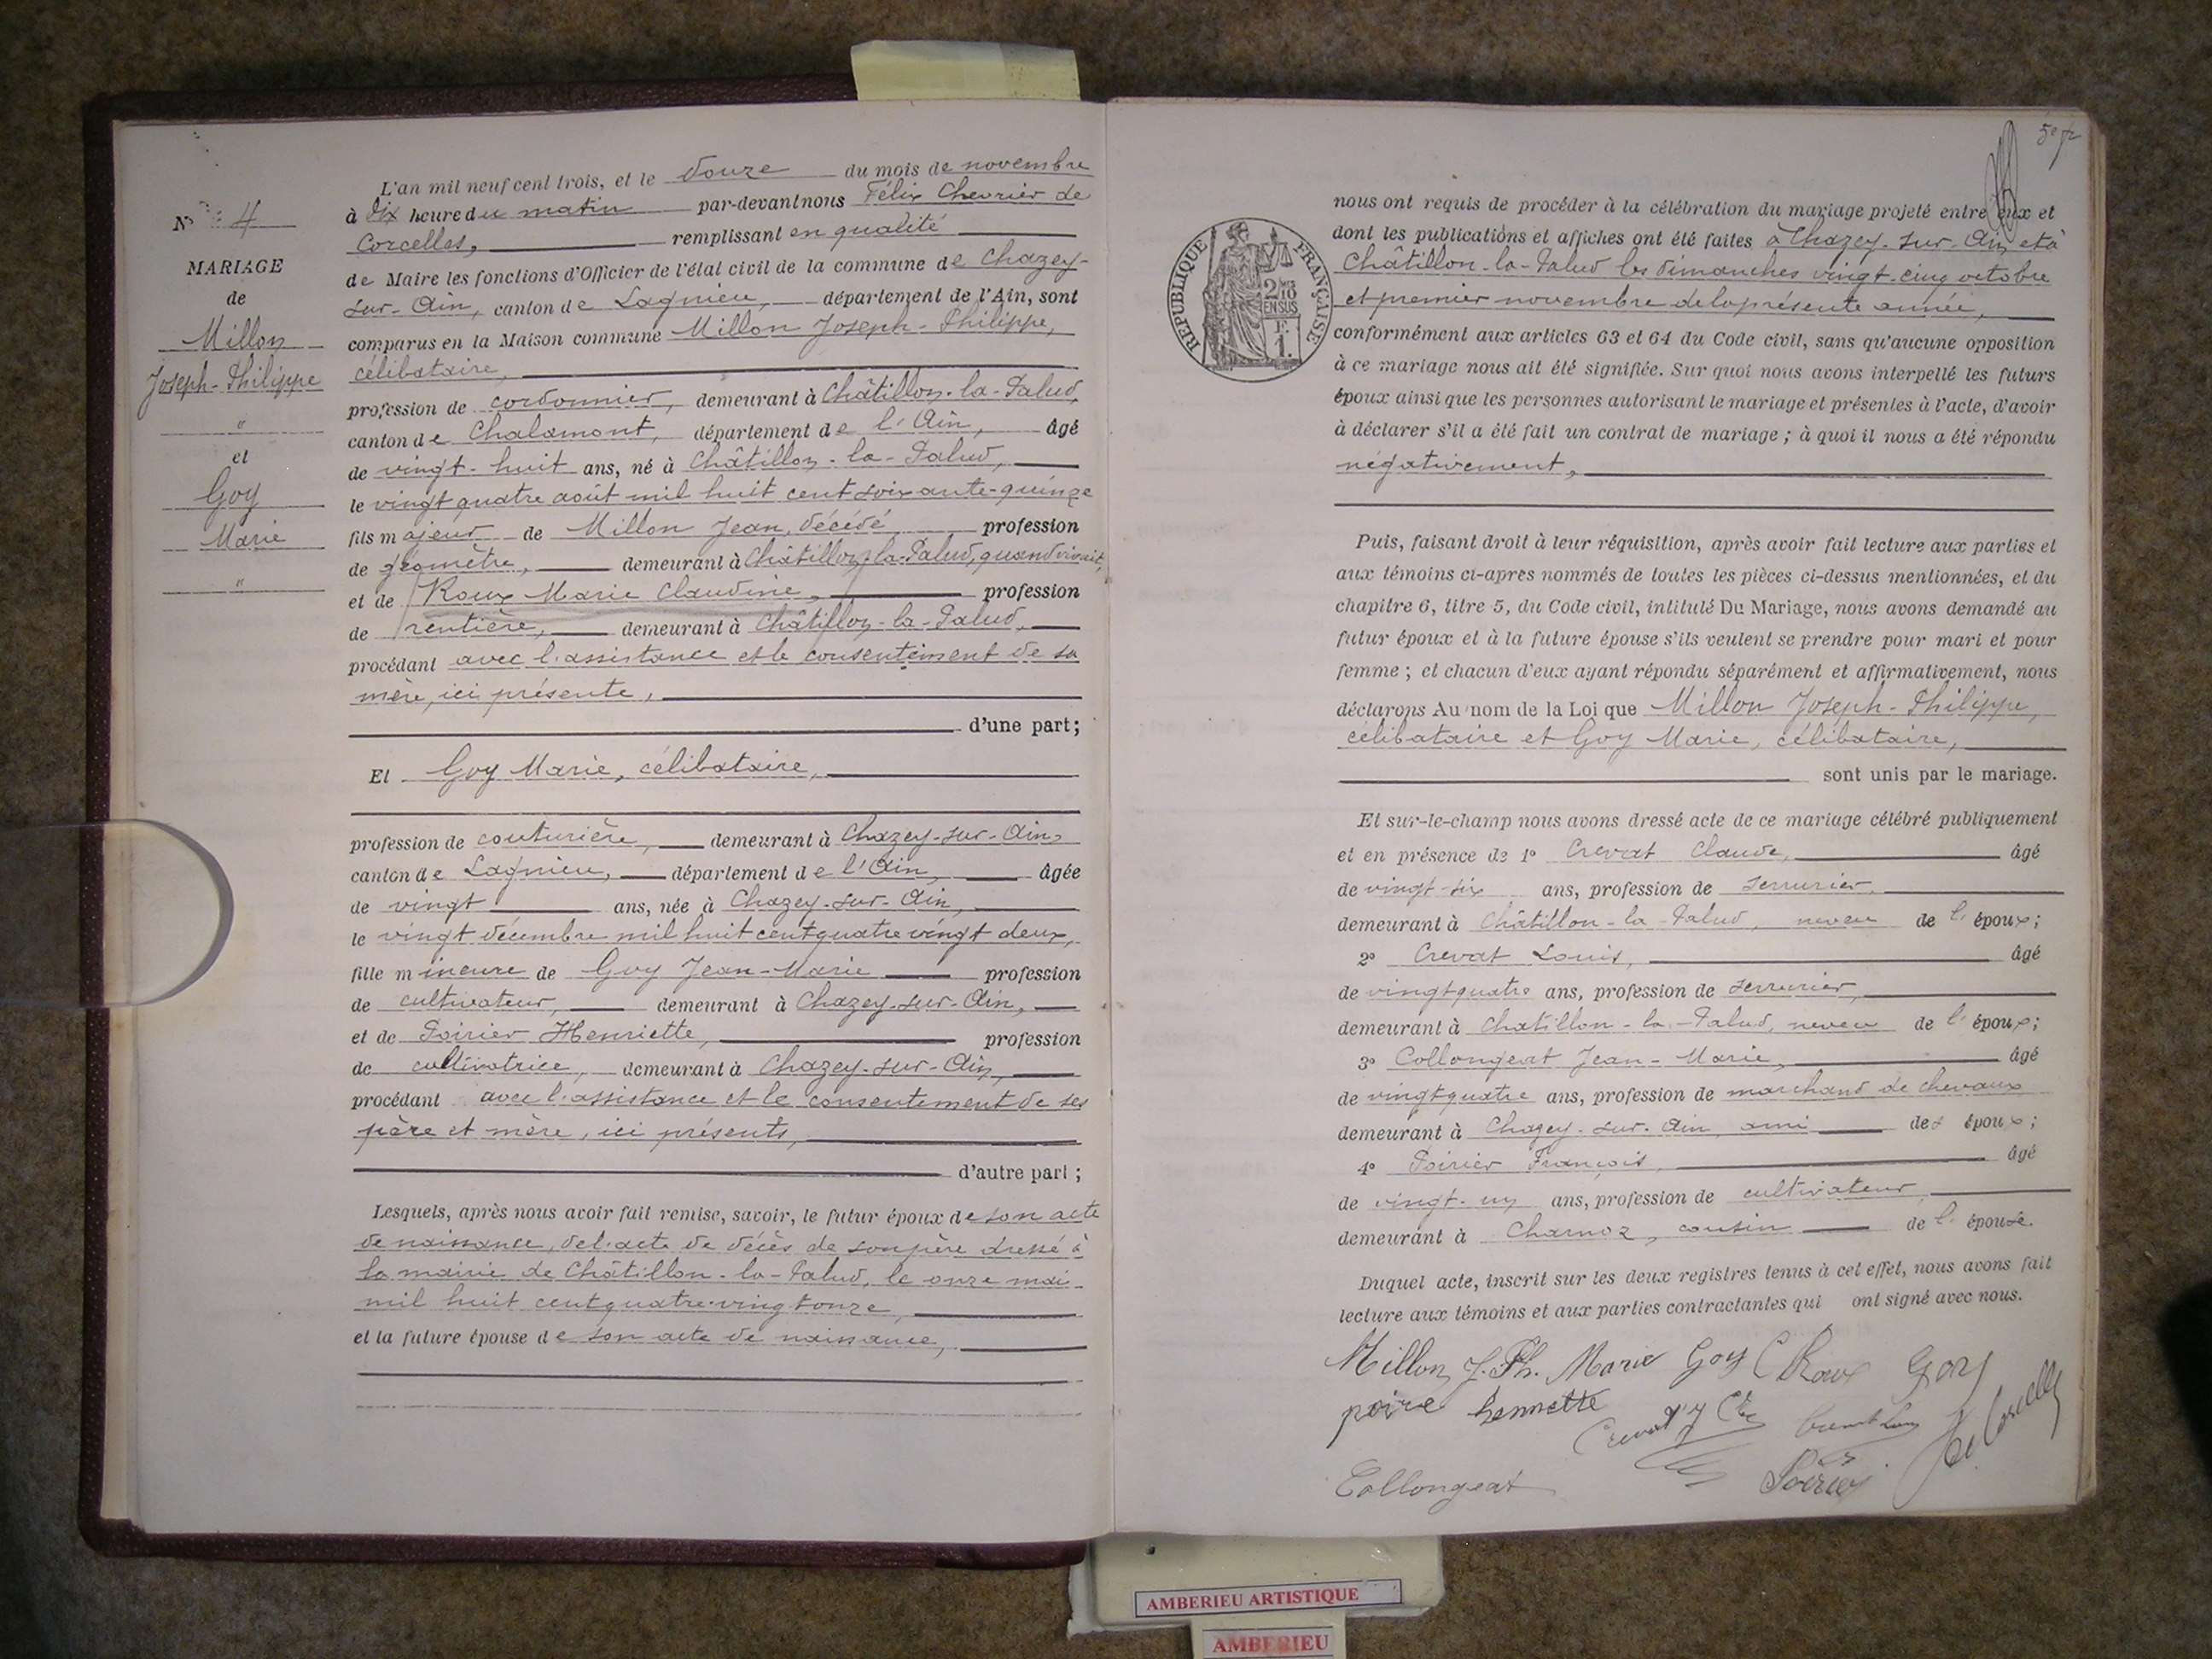 N° 4
MARIAGE
de
Millon
Joseph-Philippe
"
et
Goy
Marie
"
L'an mil neuf cent trois, et le douze du mois de novembre
à dix heure du matin par-devant nous Félix Chevrier de
Corcelles, remplissant en qualité
de Maire les fonctions d'Officier de l'état civil de la commune de Chazey-
sur-Ain, canton de Lagnieu, département de l'Ain, sont
comparus en la Maison commune Millon Joseph-Philippe,
célibataire,
profession de cordonnier, demeurant à Châtillon-la-Palud,
canton de Chalamont, département de l'Ain, âgé
de vingt-huit ans, né à Châtillon-la-Palud,
le vingt quatre août mil huit cent soixante-quinze
fils majeur de Millon Jean, décédé profession
de géomètre, demeurant à Châtillon-la-Palud, quand vivait,
et de Roux Marie Claudine, profession
de rentière, demeurant à Châtillon-la-Palud,
procédant avec l'assistance et le consentement de sa
mère, ici présente,
d'une part;
Et Goy Marie, célibataire,
profession de couturière, demeurant à Chazey-sur-Ain,
canton de Lagnieu, département de l'Ain, âgée
de vingt ans, née à Chazey-sur-Ain,
le vingt décembre mil huit cent quatre vingt deux,
fille mineure de Goy Jean-Marie profession
de cultivateur, demeurant à Chazey-sur-Ain,
et de Poirier Henriette, profession
de cultivatrice, demeurant à Chazey-sur-Ain,
procédant avec l'assistance et le consentement de ses
père et mère, ici présents,
d'autre part ;
Lesquels, après nous avoir fait remise, savoir, le futur époux de son acte
de naissance, de l'acte de décès de son père dressé à
la mairie de Châtillon-la-Palud, le onze mai
mil huit cent quatre-vingt onze,
et la future épouse de son acte de naissance,
nous ont requis de procéder à la célébration du mariage projeté entre eux et
dont les publications et affiches ont été faites à Chazey-sur-Ain et à
Châtillon-la-Palud les dimanches vingt-cinq octobre
et premier novembre de la présente année,
conformément aux articles 63 et 64 du Code civil, sans qu'aucune opposition
à ce mariage nous ait été signifiée. Sur quoi nous avons interpellé les futurs
époux ainsi que les personnes autorisant le mariage et présentes à l'acte, d'avoir
à déclarer s'il a été fait un contrat de mariage ; à quoi il nous a été répondu
négativement,
RÉPUBLIQUE FRANÇAISE
2/10
EN SUS
F.
1.
Puis, faisant droit à leur réquisition, après avoir fait lecture aux parties et
aux témoins ci-après nommés de toutes les pièces ci-dessus mentionnées, et du
chapitre 6, titre 5, du Code civil, intitulé Du Mariage, nous avons demandé au
futur époux et à la future épouse s'ils veulent se prendre pour mari et pour
femme ; et chacun d'eux ayant répondu séparément et affirmativement, nous
déclarons Au nom de la Loi que Millon Joseph-Philippe,
célibataire et Goy Marie, célibataire,
sont unis par le mariage.
Et sur-le-champ nous avons dressé acte de ce mariage célébré publiquement
et en présence de 1° Crevat Claude, âgé
de vingt-six ans, profession de serrurier,
demeurant à Châtillon-la-Palud, neveu de l'époux;
2° Crevat Louis, âgé
de vingt quatre ans, profession de serrurier,
demeurant à Chatillon-la-Palud, neveu de l'époux;
3° Collongeat Jean-Marie, âgé
de vingt quatre ans, profession de marchand de chevaux
demeurant à Chazey-sur-Ain, ami des époux;
4° Poirier François, âgé
de vingt-un ans, profession de cultivateur,
demeurant à Charnoz, cousin de l'épouse.
Duquel acte, inscrit sur les deux registres tenus à cet effet, nous avons fait
lecture aux témoins et aux parties contractantes qui ont signé avec nous.
Millon J. Ph. Marie Goy C Roux Goy
poire henriette
Collongeat
Poirier
AMBERIEU ARTISTIQUE
AMBERIEU